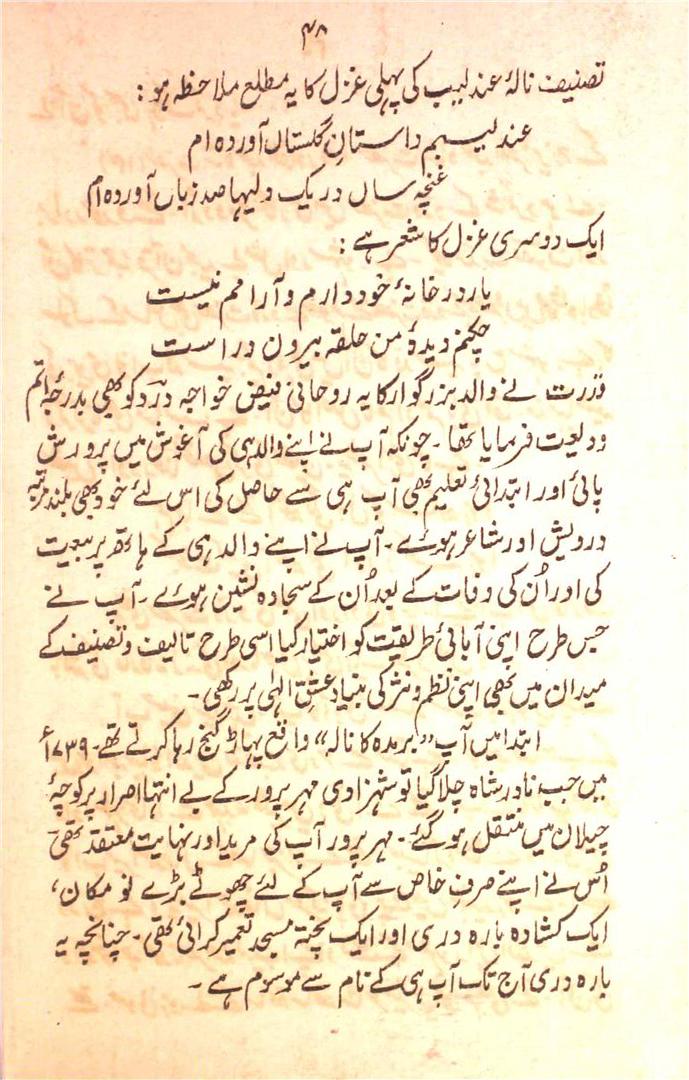 ۴۸
تصنیف نالۂ عندلیب کی پہلی غزل کا یہ مطلع ملاحظہ ہو :
عندلیبم داستانِ گلستاں آوردہ ام
غنچہ ساں در یک دلیہا صد زباں آوردہ ام
ایک دوسری غزل کا شعر ہے :
یار در خانۂ خود دارم و آرامم نیست
چکنم دیدۂ من حلقہ بیرون در است
قدرت نے والد بزرگوار کا یہ روحانی فیض خواجہ درد کو بھی بدرجۂ اتم
ودلیعت فرمایا تھا ۔ چونکہ آپ نے اپنے والد ہی کی آغوش میں پرورش
پائی اور ابتدائی تعلیم بھی آپ ہی سے حاصل کی اس لئے خود بھی بلند مرتبہ
درویش اور شاعر ہوئے ۔ آپ نے اپنے والد ہی کے ہاتھ پر بیعت
کی اور اُن کی وفات کے بعد اُن کے سجادہ نشین ہوئے ۔ آپ نے
جس طرح اپنی آبائی طریقیت کو اختیار کیا اسی طرح تالیف و تصنیف کے
میدان میں بھی اپنی نظم و نثر کی بنیاد عشقِ الٰہی پر رکھی ۔
ابتدا میں آپ ”برمدہ کا نالہ“ واقع پہاڑ گنج رہا کرتے تھے ۔ ۱۷۳۹ء
میں جب نادر شاہ چلا گیا تو شہزادی مہر پرور کے بے انتہا اصرار پر کوچۂ
چیلان میں منتقل ہو گئے ۔ مہر پرور آپ کی مرید اور نہایت معتقد تھی
اُس نے اپنے صرفِ خاص سے آپ کے لئے چھوٹے بڑے نو مکان ،
ایک کشادہ بارہ دری اور ایک پختہ مسجد تعمیر کرائی تھی ۔ چنانچہ یہ
بارہ دری آج تک آپ ہی کے نام سے موسوم ہے ۔